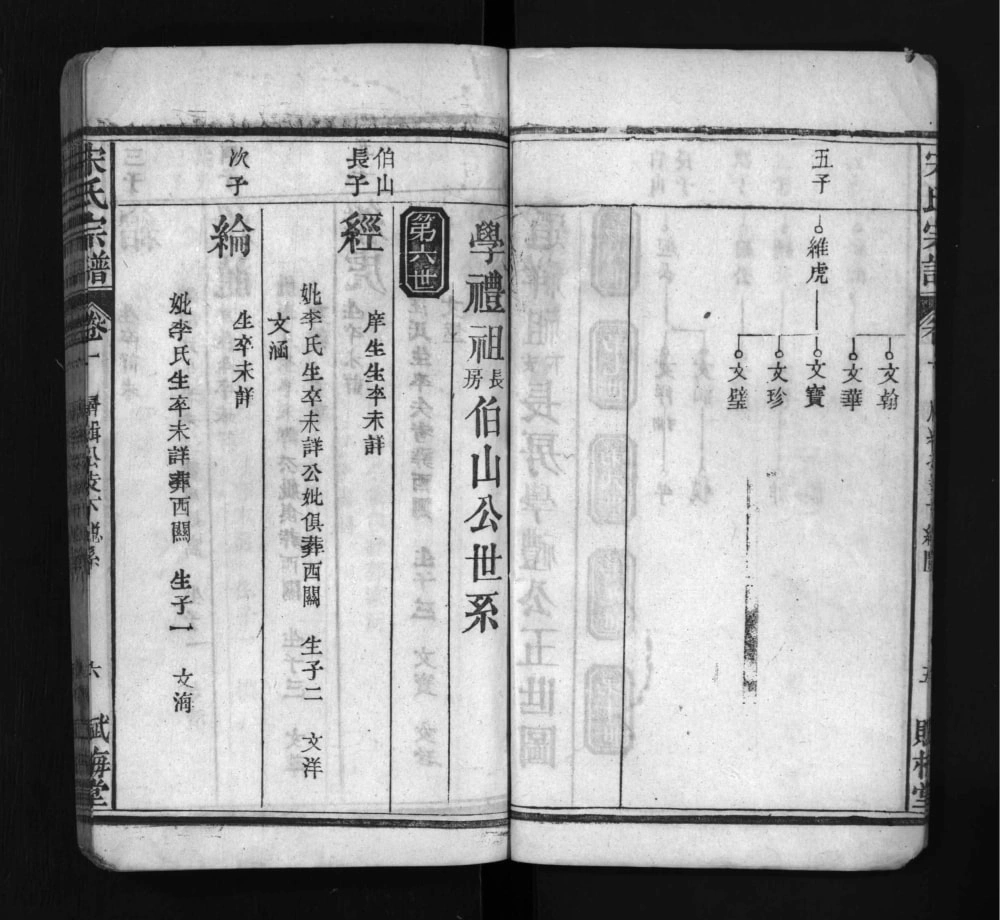 五子
維虎
文翰
文華
文寶
文珍
文璧
學禮祖長房伯山公世系
第六世
伯山
長子
經
庠生生卒未詳
妣李氏生卒未詳公妣俱葬西關 生子二 文洋
文涵
次子
綸
生卒未詳
妣李氏生卒未詳葬西關 生子一 文海
宋氏宗譜
卷一
六
賦梅堂